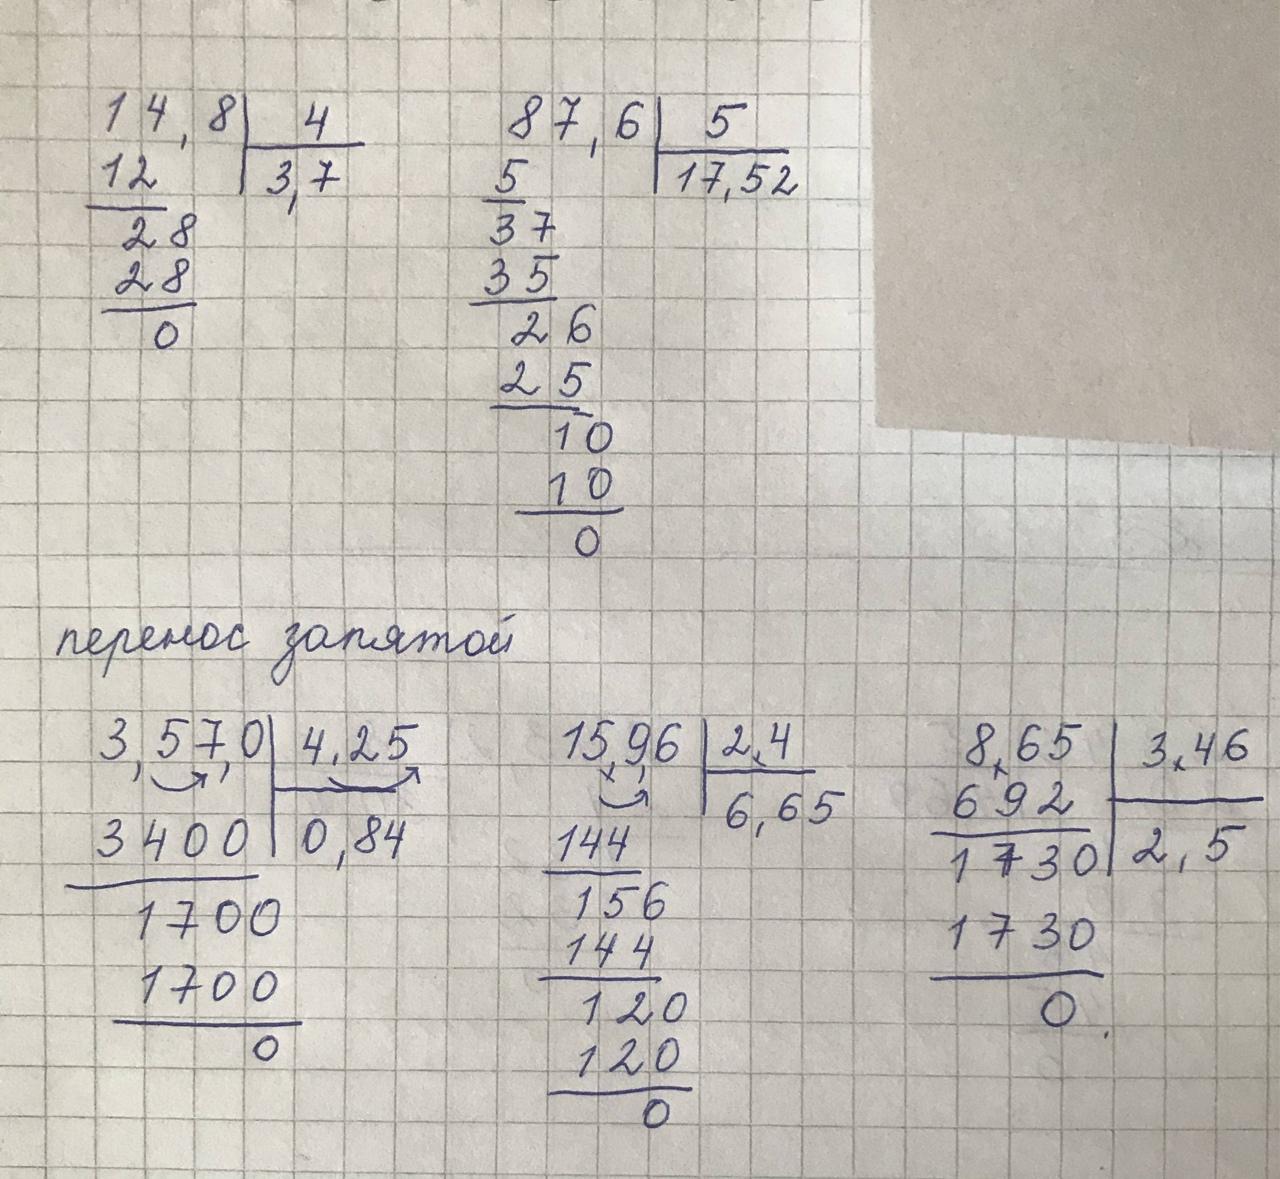 14,8 4
12 3,7
28
28
0
87,6 5
5 17,52
37
35
26
25
10
10
0
перенос запятой
3,57,0 4,25
3400 0,84
1700
1700
0
15,9,6 2,4
6,65
144
156
144
120
120
0
8,65 3,46
692
1730 2,5
1730
0